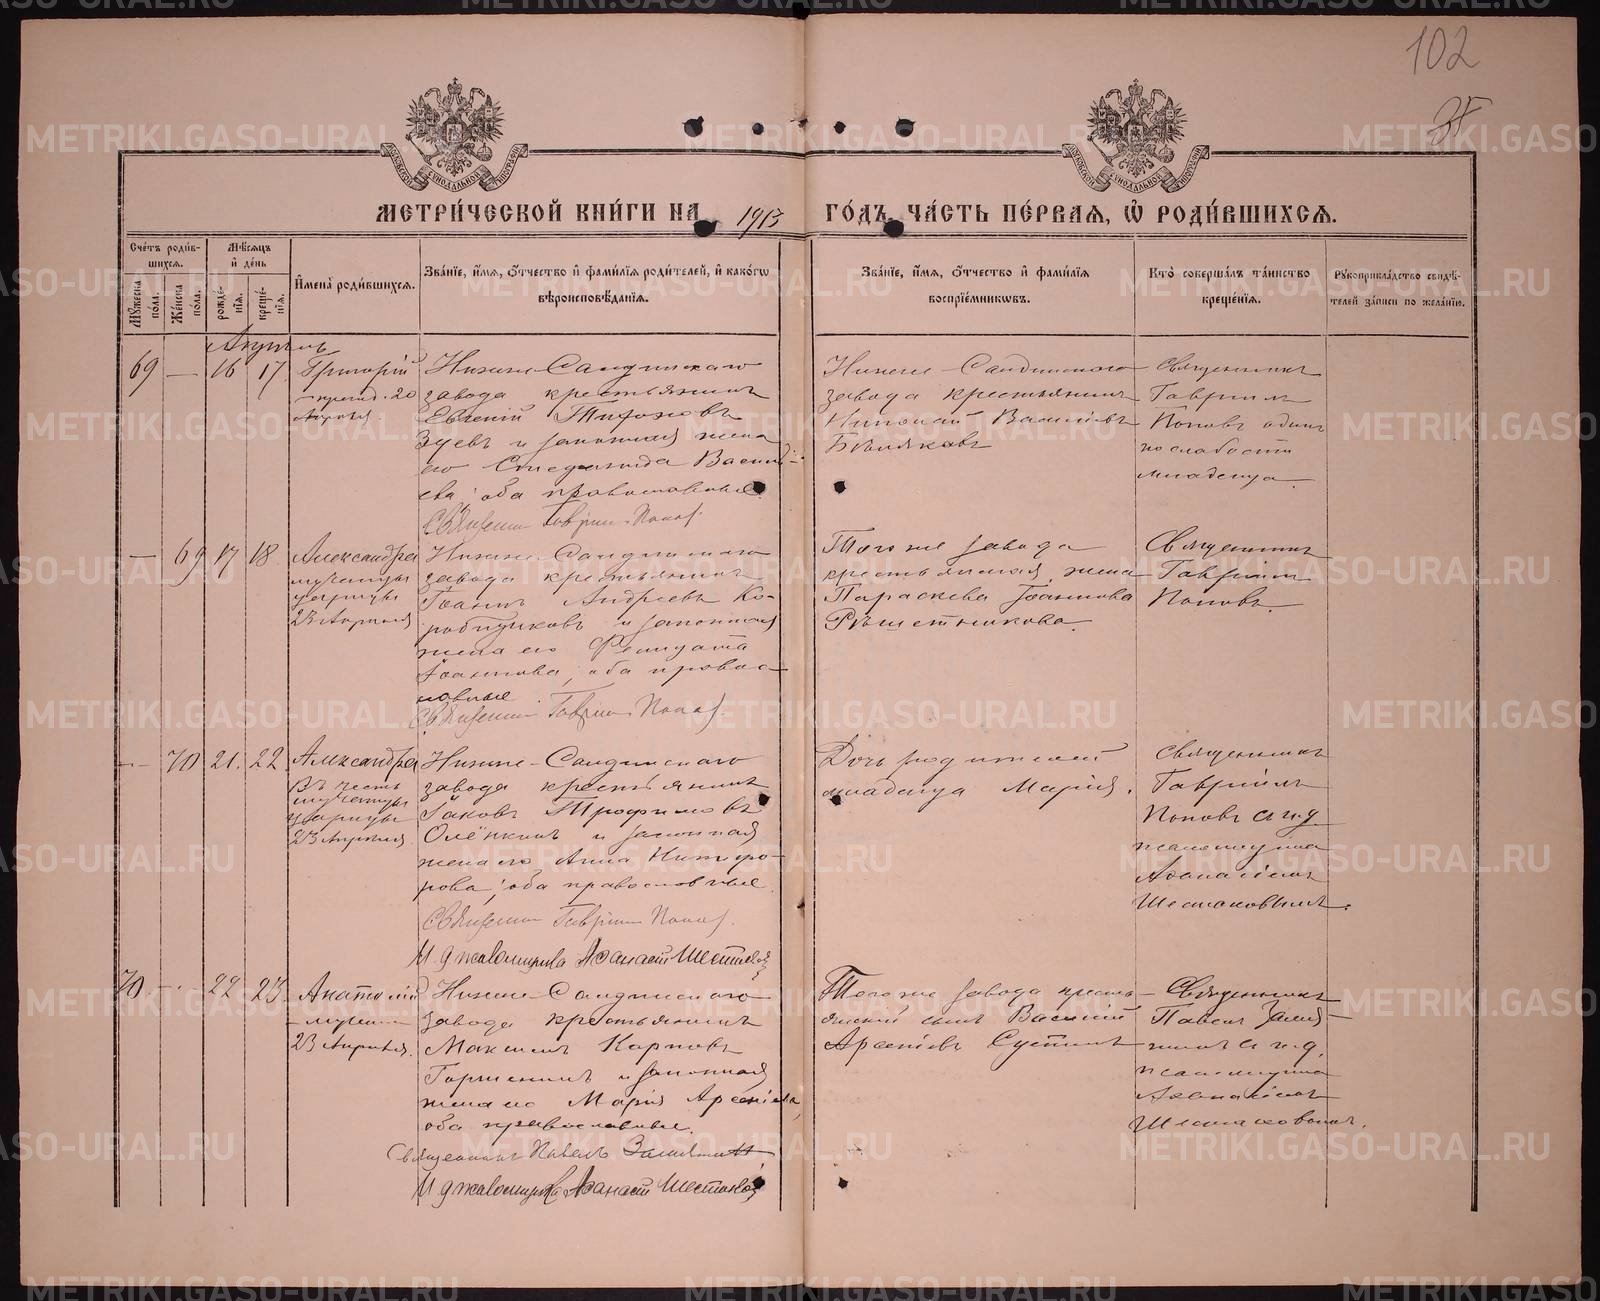 102
МЕТРИ́ЧЕСКОЙ КНИ́ГИ НА 1913 ГО́ДЪ, ЧА́СТЬ ПЕ́РВАЯ, Ѡ РОДИ́ВШИХСЯ.
Сче́тъ роди́вшихся.
Мѣ́сяцъ и де́нь
Мꙋ́жеска по́ла.
Же́нска по́ла.
рожде́нїя.
креще́нїя.
И҆мена̀ роди́вшихся.
Зва́нїе, и҆́мя, ѻ҆́тчество и҆ фами́лїя роди́телей, и҆ како́гѡ вѣроисповѣ́данїя.
Зва́нїе, и҆́мя, ѻ҆́тчество и҆ фами́лїя воспрїе́мникѡвъ.
Кто̀ соверша́лъ та́инство креще́нїя.
Рꙋкоприкла́дство свидѣ́телей за́писи по жела́нїю.
Апрель
69 — 16 17
Григорій
20
Апреля.
Нижне-Салдинскаго
завода крестьянинъ
Евгеній Тихоновъ
Зуевъ и законная жена
его Степанида Василь-
ева, оба православные.
Священник Гавриил Попов.
Нижне-Салдинскаго
завода крестьянинъ
Николай Васильевъ
Бѣляковъ
Священникъ
Гавріилъ
Поповъ один
по слабости
младенца.
— 69 17 18
Александра
мученицы
царицы
23 Апреля
Нижне-Салдинскаго
завода крестьянинъ
Іоаннъ Андреевъ Ко-
робщиковъ и законная
жена его
Іоаннова, оба правос-
лавные
Священник Гавриил Попов.
Того же завода
крестьянская жена
Параскева Іоаннова
Рѣшетникова.
Священникъ
Гавріилъ
Поповъ.
— 70 21. 22.
Александра
Въ честь
мученицы
царицы
23 Апреля
Нижне-Салдинскаго
завода крестьянинъ
Іаковъ Трофимовъ
Олёнкинъ и законная
жена его Анна Никифо-
рова, оба православные.
Священник Гавриил Попов.
И д псаломщика Афанасий Шестаков
Дочь родителей
младенца Марія.
Священникъ
Гавріилъ
Поповъ с и.д.
псаломщика
Аѳанасіемъ
Шестаковымъ.
70 — 22 23
Анатолій
мучен
23 Апреля.
Нижне-Салдинскаго
завода крестьянинъ
Максимъ Карповъ
и законная
жена его Марія Арсеніева,
оба православные.
Священникъ Павелъ
И д псаломщика Афанасий Шестаков
Того же завода кресть-
янскій сынъ Василій
Арсеніевъ Сустинъ
Священникъ
Павелъ
с и.д.
псаломщика
Аѳанасіемъ
Шестаковымъ.
METRIKI.GASO-URAL.RU